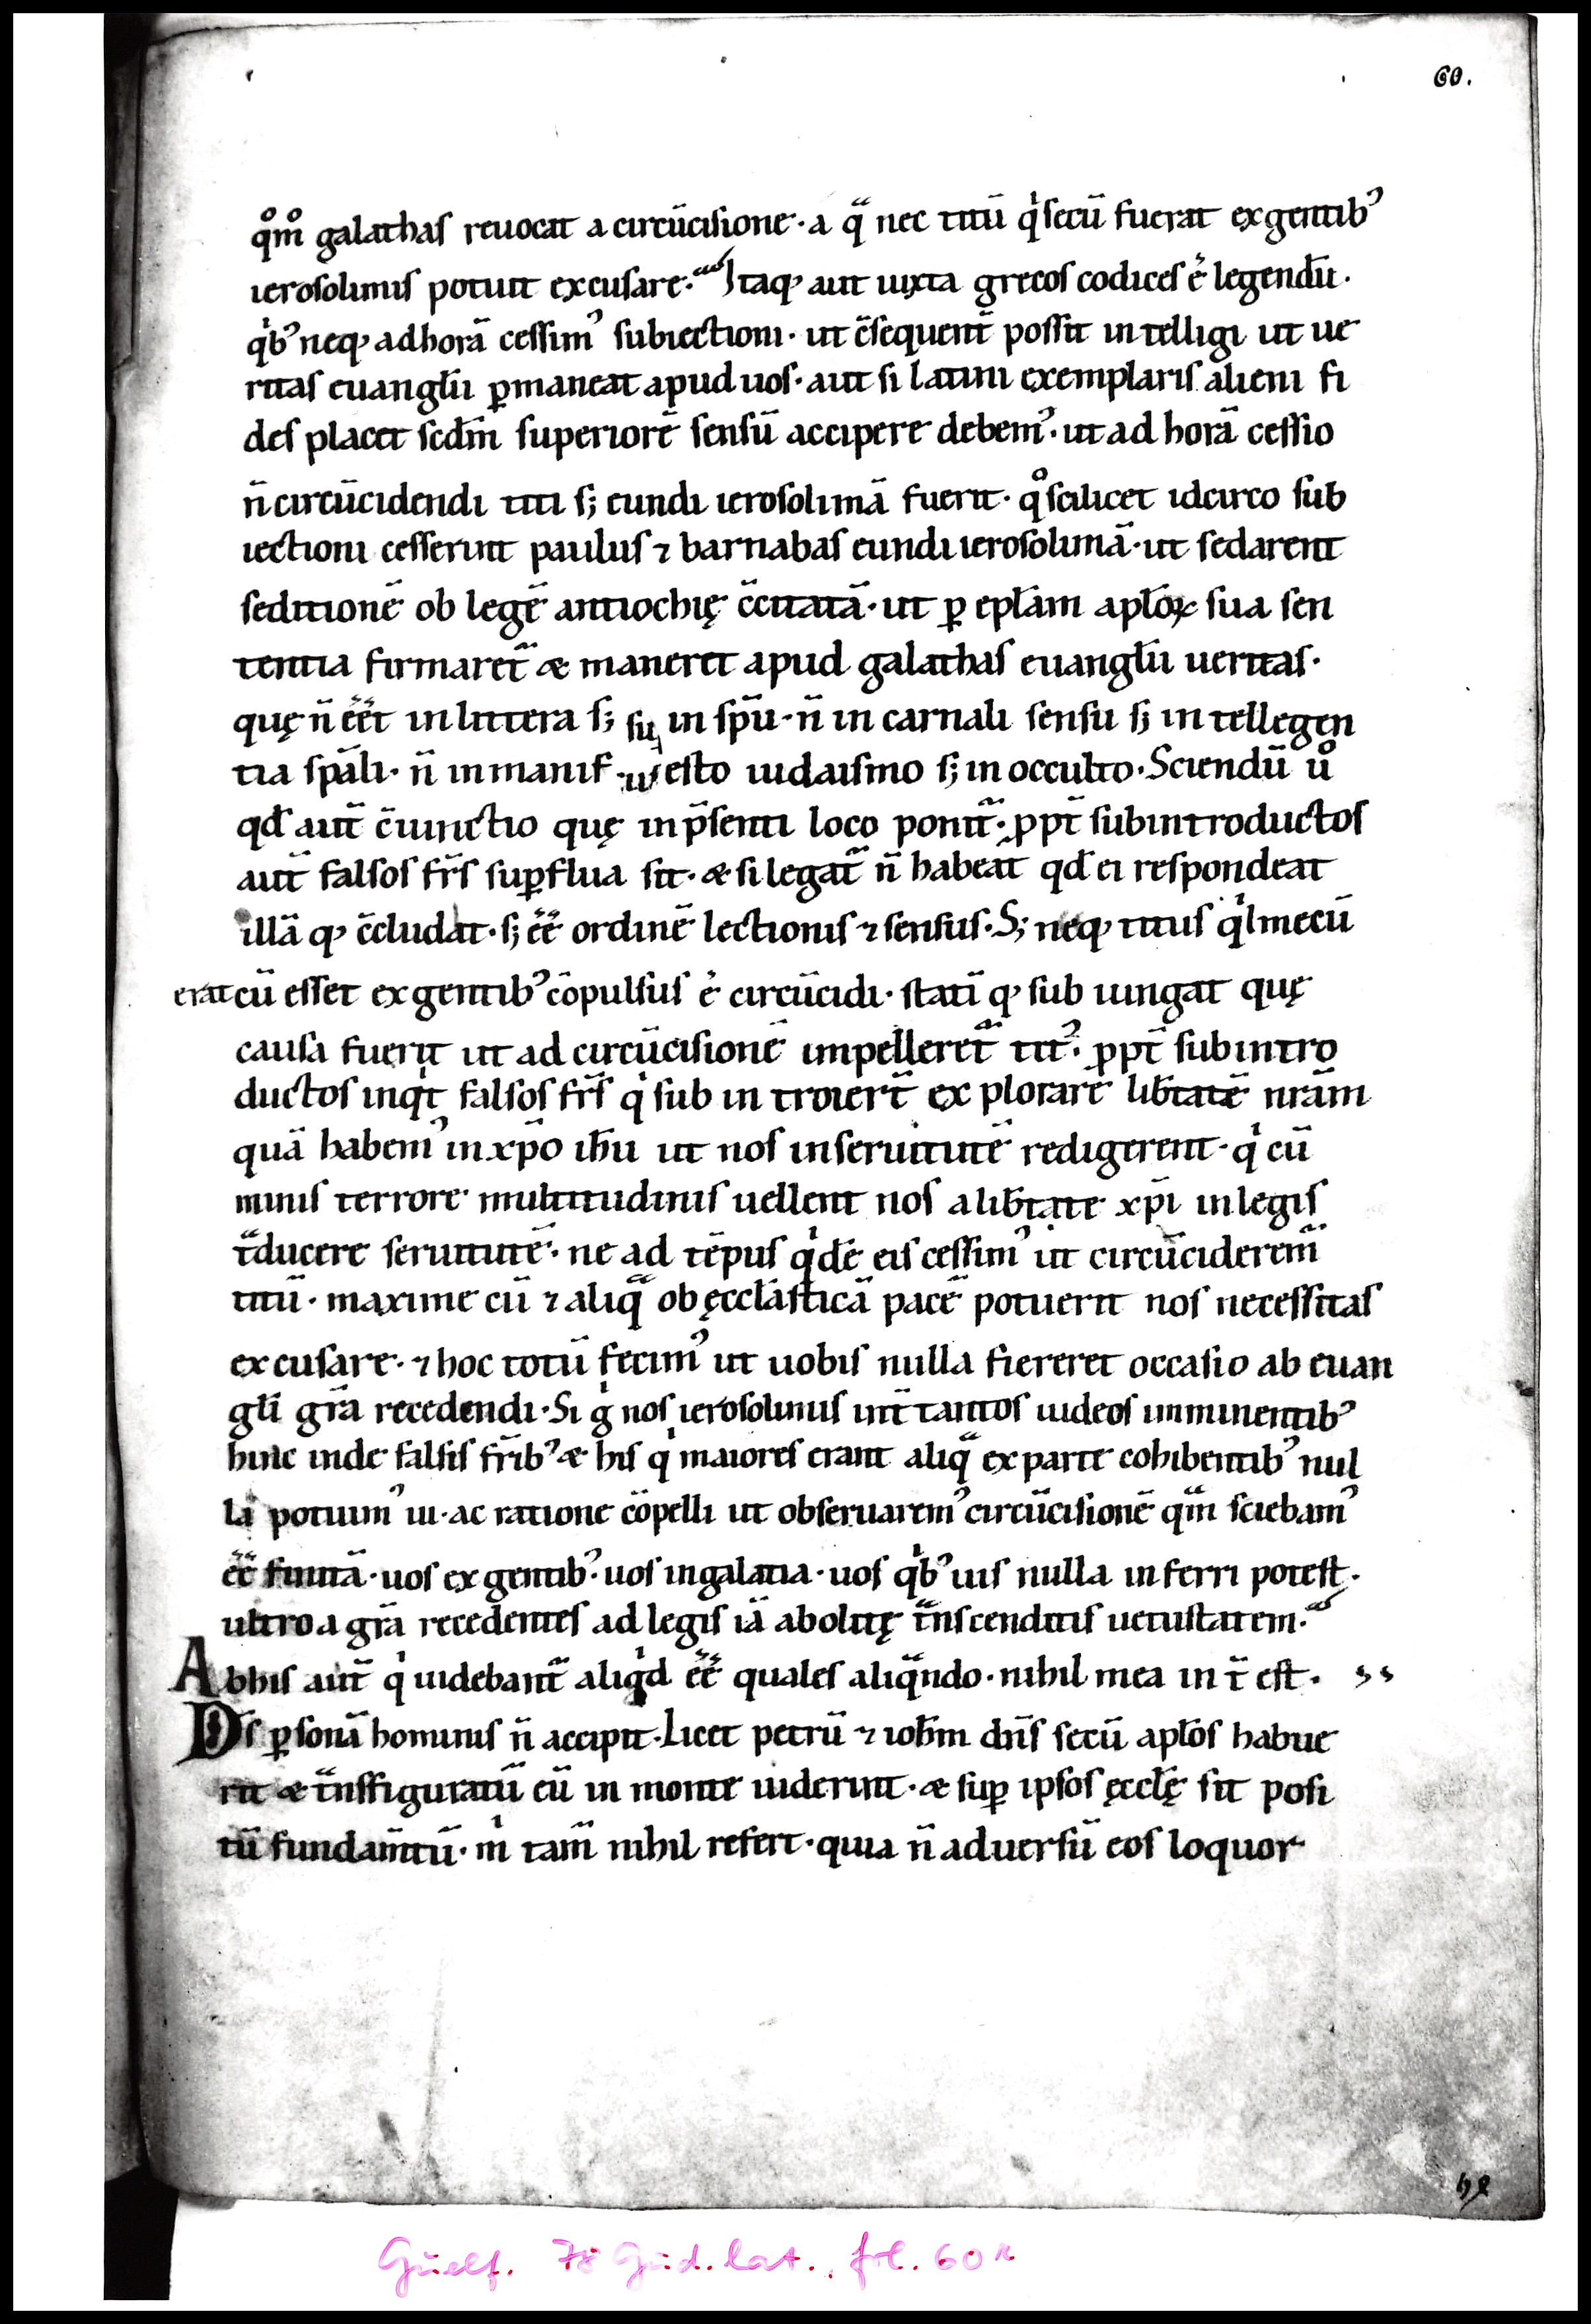 60.
qͦm̊ galathas reuocat a circūcisione· a q̄ nec titū qͥsecū fuerat exgentib᾿
ierosolimis potuit excusare· Itaq; aut iuxta grecos codices ē legendū·
qͥb᾿ neq; adhorā cessim᾿ subiectioni· ut c̄sequent̄ possit intelligi ut ue
ritas euanglīi ꝑmaneat apud uos· aut si latini exemplaris alicui fi
des placet scdm̄ superiorē sensū accipere debem᾿· ut ad horā cessio
n̄ circūcidendi titi s; eundi ierosolimā fuerit· qͦ scilicet idcirco sub
iectioni cesserint paulus ⁊ barnabas eundi ierosolimā· ut sedarent
seditionē ob legē antiochię c̄citatā· ut ꝑ epłam apłoꝝ sua sen
tentia firmaret̄ & maneret apud galathas euanglīi ueritas·
quę n̄ ēēt in littera s; in sp̄u· n̄ in carnali sensu s; intellegen
tia sp̄ali· n̄ inmanif esto iudaismo s; in occulto· Sciendū uͦ
qd̄ aut̄ c̄iunctio quę inp̄senti loco ponit̄· ꝓpt̄ subintroductos
aut̄ falsos fr̄s suꝑflua sit· & si legat̄ n̄ habeat̄ qd̄ ei respondeat
illā q; c̄cludat· s; ēē ordinē lectionis ⁊ sensus· S; neq; titus qͥ mecū
erat cū esset exgentib᾿ cōpulsus ē circūcidi· stati q; sub iungat quę
causa fuerit ut ad circūcisionē impelleret̄ tit᾿· ꝓpt̄ subintro
ductos inqͥt falsos fr̄s qͥ sub in troiert̄ ex plorare lib̄tatē nr̄am
quā habem᾿ in xp̄o ih̄u ut nos inseruitutē redigerent· qͥ cū
minis terrore multitudinis uellent nos a lib̄tate xp̄i in legis
t̄ducere seruitutē· ne ad tēpus qͥdē eis cessim᾿ ut circūciderem̄
titū· maxime cū ⁊ aliq̄ ob ęccłasticā pacē potuerit nos necessitas
excusare· ⁊ hoc totū fecim᾿ ut uobis nulla fieret occasio ab euan
głii gr̄a recedendi· Si gͥ nos ierosolimis int̄ tantos iudeos imminentib᾿
hinc inde falsis fr̄ib᾿ & his qͥ maiores erant aliq̄ ex parte cohibentib᾿ nul
la potuim᾿ ui· ac ratione cōpelli ut obseruarem᾿ circūcisionē qm̄ sciebam᾿
ēē finitā· uos ex gentib᾿· uos ingalatia· uos qͥb᾿ uis nulla inferri potest·
ultro a gr̄a recedentes ad legis iā abolitę t̄nscenditis uetustatem·
Abhis aut̄ qͥ uidebant̄ aliqͥd ēē quales aliq̄ndo· nihil mea in t̄ est·
Ds̄ ꝑsonā hominis n̄ accipit· Licet petrū ⁊ ioh̄m dn̄s secū apłos habue
rit & t̄nsfiguratū eū in monte uiderint· & suꝑ ipsos ęccłę sit posi
tū fundam̄tū· mͥ tam̄ nihil refert· quia n̄ aduersū eos loquor
Guelf. 78 Gud. lat., fol. 60r